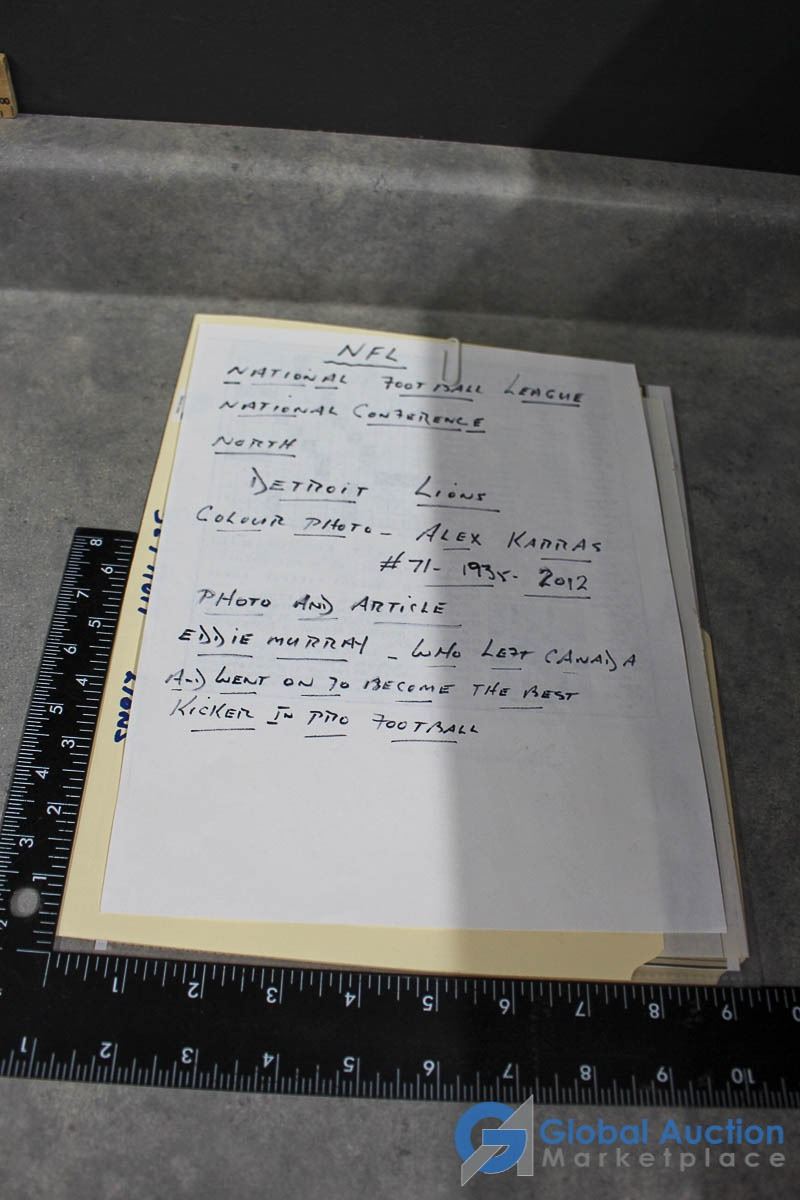 NFL
NATIONAL FOOTBALL LEAGUE
NATIONAL CONFERENCE
NORTH
DETROIT LIONS
COLOUR PHOTO - ALEX KARRAS
#71 - 1935 - 2012
PHOTO AND ARTICLE
EDDIE MURRAY - WHO LEFT CANADA
AND WENT ON TO BECOME THE BEST
KICKER IN PRO FOOTBALL
LIONS
8
7
6
5
4
3
2
1
6
5
4
3
2
1
1 2 3 4 5 6 7 8 9 10
1 2 3 4 5 6 7 8 9 10
Global Auction
Marketplace